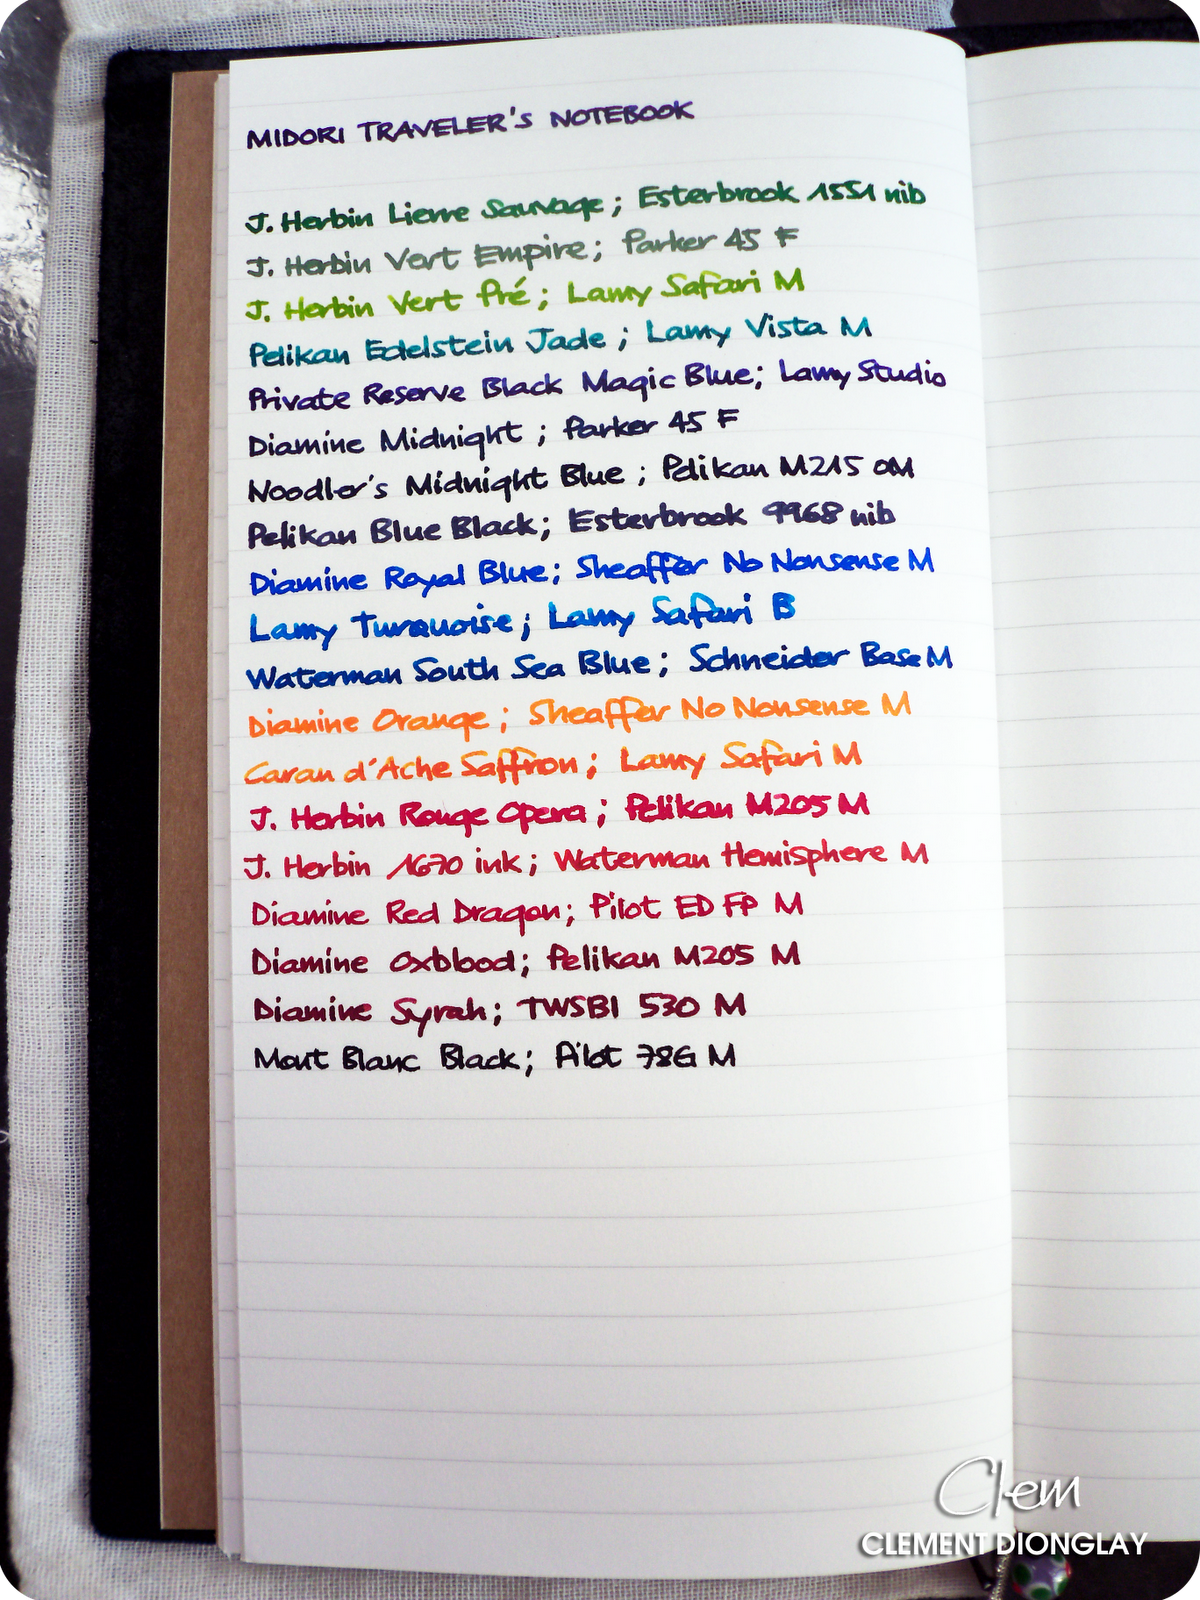 MIDORI TRAVELER'S NOTEBOOK
J. Herbin Lierre Sauvage; Esterbrook 1551 nib
J. Herbin Vert Empire; Parker 45 F
J. Herbin Vert Pré; Lamy Safari M
Pelikan Edelstein Jade; Lamy Vista M
Private Reserve Black Magic Blue; Lamy Studio
Diamine Midnight; Parker 45 F
Noodler's Midnight Blue; Pelikan M215 OM
Pelikan Blue Black; Esterbrook 9968 nib
Diamine Royal Blue; Sheaffer No Nonsense M
Lamy Turquoise; Lamy Safari B
Waterman South Sea Blue; Schneider Base M
Diamine Orange; Sheaffer No Nonsense M
Caran d'Ache Saffron; Lamy Safari M
J. Herbin Rouge Opera; Pelikan M205 M
J. Herbin 1670 ink; Waterman Hemisphere M
Diamine Red Dragon; Pilot ED FP M
Diamine Oxblood; Pelikan M205 M
Diamine Syrah; TWSBI 530 M
Mont Blanc Black; Pilot 78G M
Clem
CLEMENT DIONGLAY